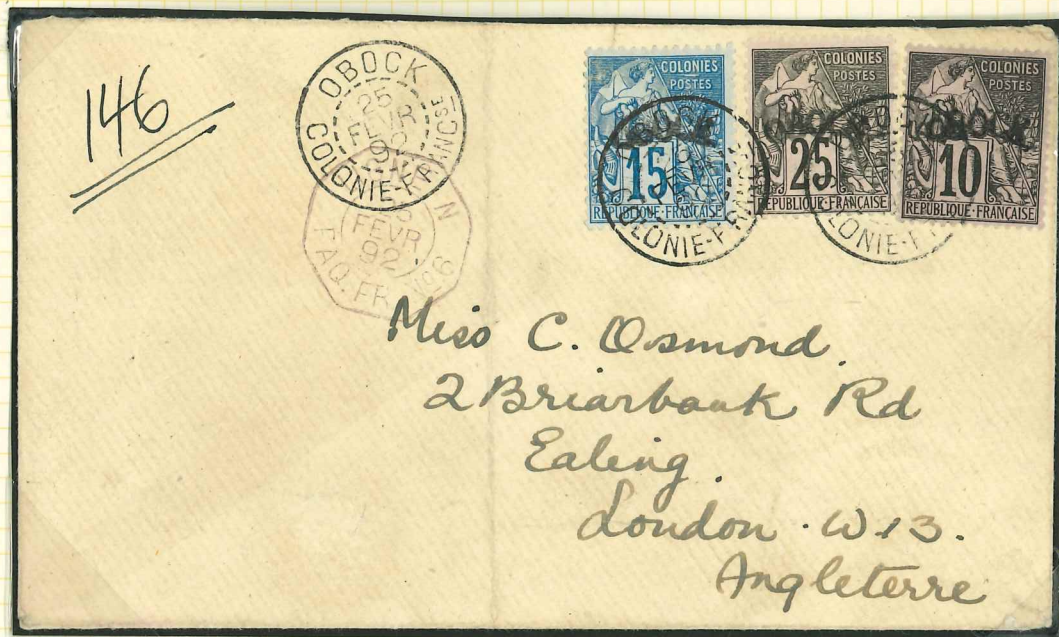 146
OBOCK
25
FEVR
COLONIE-FRANÇSE
FEVR
92
N
PAQ. FR. Nº6
COLONIES
POSTES
OBOCK
15
REPUBLIQUE FRANÇAISE
COLONIES
POSTES
25
REPUBLIQUE FRANÇAISE
COLONIES
POSTES
OBOCK
10
REPUBLIQUE FRANÇAISE
COLONIE-FRA
COLONIE-F
Miss C. Osmond.
2 Briarbank Rd
Ealing.
London. W13.
Angleterre